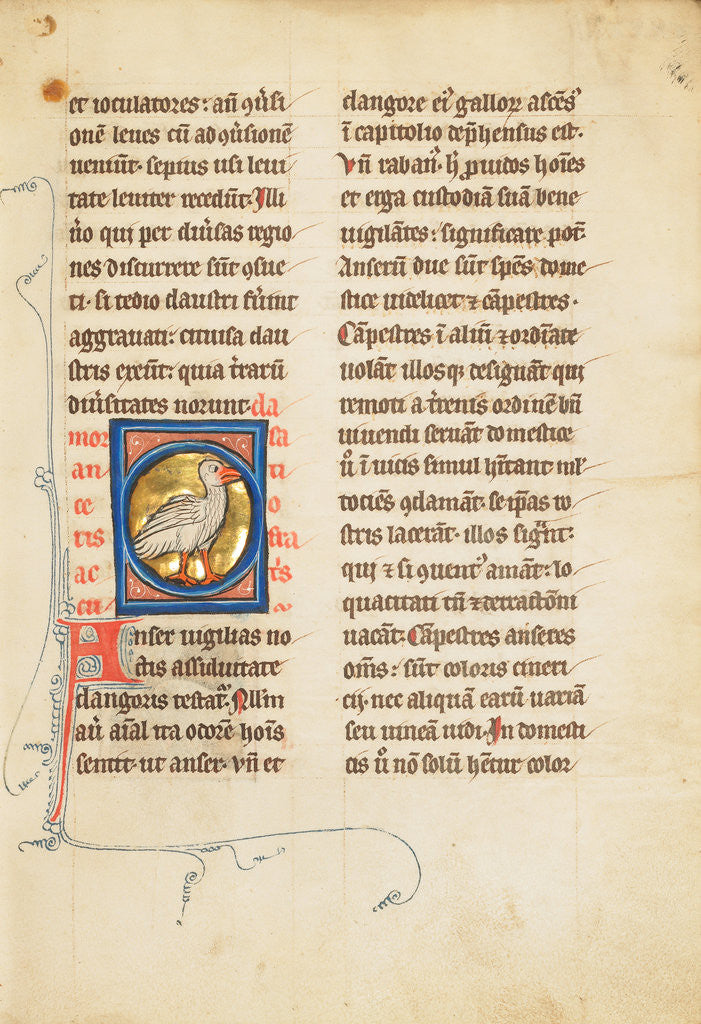 et ioculatores: añ ꝯũsi
onē leues cū ad ꝯũsionē
ueniūt· sepius usi leui
tate leuiter recedūt· Illi
ũo qui per diũsas regio
nes discurrere sūt ꝯsue
ti· si tedio claustri fũint
aggrauati: citius a clau
stris exeūt: quia t̃rarū
diũsitates norunt· da
mor sa
an ti
ce o
ris stra
ac t̃s
cu
Anser uigilias no
ctis assiduitate
clangoris testat᷑· Nullm̄
aū aīal ita odorē hoīs
sentit· ut anser· vñ et
clangore eiꝰ galloꝝ ascēsꝰ
ī capitolio dep̄hensus est·
Vñ raban᷑· h̄ ꝓuidos hoīes
et erga custodiā suā bene
uigilātes: significare pot̄·
Anserū due sūt spēs dome
stice uidelicet ⁊ cāpestres·
Cāpestres ī altū ⁊ ordīate
uolāt illosqꝫ designāt qui
remoti a t̃renis ordinē bñ
uiuendi seruāt domestice
ũ ī uicis simul hītant ml̄
tociēs ꝯclamāt· se ip̄as ro
stris lacerāt· illos sigāt:
qui ⁊ si ꝯuentꝰ amāt: lo
quacitati tn̄ ⁊ detractōni
uacāt· Cāpestres anseres
om̄s: sūt coloris cineri
cij· nec aliquā earū uariā
seu uineā uidi· In domesti
cis ũ nō solū hētur color